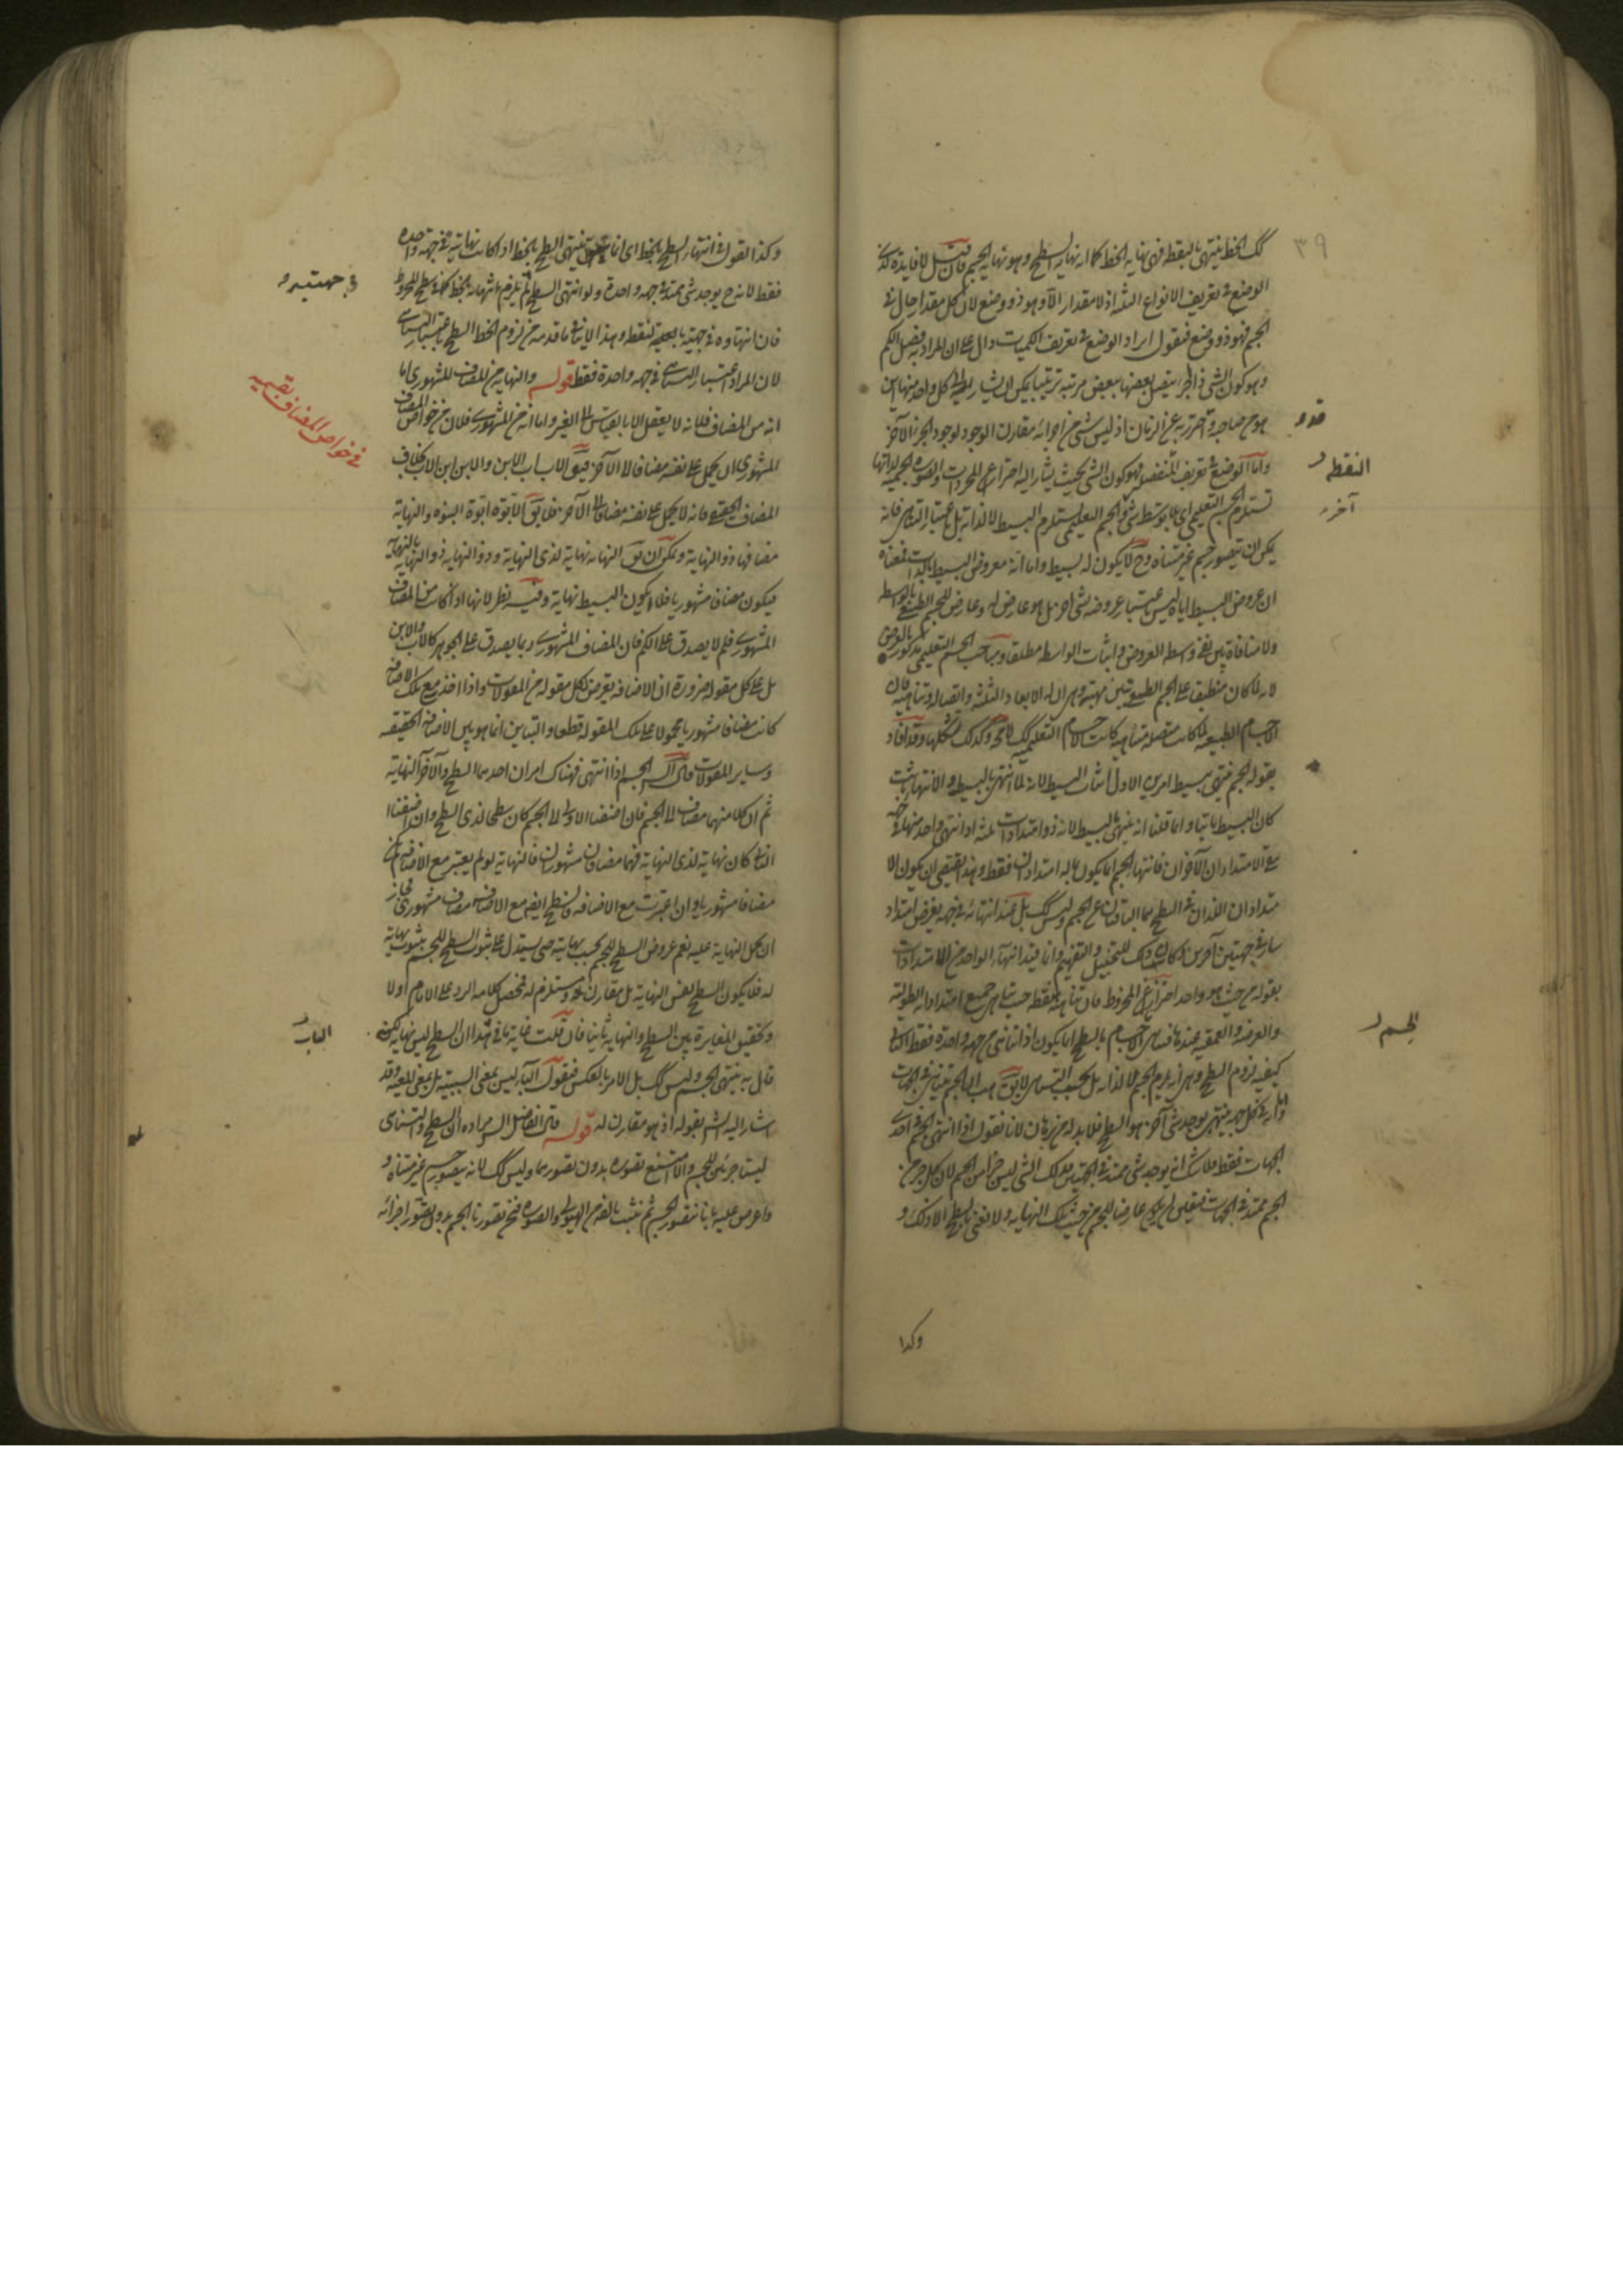 ٣٩
كك الخط ينتهى بالنقطة فهى نهاية الخط كما انه نهاية السطح وهو نهاية الجسم فان قيل لا فايدة لذكر
الوضع فى تعريف الانواع الثلثة اذ لا مقدار الا وهو ذو وضع لان كل مقدار حال فى
الجسم فهو ذو وضع فنقول ايراد الوضع فى تعريف الكميات دال على ان المراد به فصل الكم
وهو كون الشى ذا اجزاء يتصل بعضها ببعض مرتبة ترتيبا يمكن ان يشار الى كل واحد منها اين
هو من صاحبه واحترز به عن الزمان اذ ليس شى من اجزائه مقارن الوجود لوجود الجزء الآخر
واما الوضع فى تعريف المنفصل فهو كون الشى بحيث يشار اليه احتراز عن المجردات والصورة الجسمية لذاتها
تستلزم الجسم التعليمى اى بلا توسط شى والجسم التعليمى يستلزم البسيط لا لذاته بل باعتبار التناهى فانه
يمكن ان يتصور جسم غير متناه وح لا يكون له بسيط واما انه معروض البسيط بالذات فمعناه
ان عروض البسيط اياه ليس باعتبار عروضه لشى آخر بل هو عارض له وعارض للجسم الطبيعى بالواسطة
ولا منافاة بين نفى وسط العروض واثبات الواسط مطلقا ومباحث الجسم التعليمى مذكور بالعرض
لانه لما كان منطبقا على الجسم الطبيعى تبين مهيته وهى ان له الابعاد الثلثة واتصاله وتناهيه فان
الاجسام الطبيعية لما كانت متصلة متناهية كانت الاجسام التعليمية كك لا محة وكذلك تشكلها وقد افاد
بقوله الجسم ينتهى ببسيط امرين الاول اثبات البسيط لانه لما انتهى بالبسيط والانتهاء ثابت
كان البسيط ثابتا وانما قلنا انه ينتهى بالبسيط لانه ذو امتدادات ثلثة اذا انتهى واحد منها فى جهة
بقى الامتدادان الآخران فانتهاء الجسم انما يكون بما له امتدادان فقط وهذا يقتضى ان يكون الا
متدادان اللذان فى السطح هما الباقيان من الجسم وليس كك بل عند انتهائه فى جهة يعرض امتداد
سار فى جهتين آخرين وكان ذلك للتخييل والتفهيم وانما قيد انتهاء الواحد من الامتدادات
بقوله من حيث هو واحد احترازا عن المخروط فان تناهيه بنقطة حيث تناهى جميع امتداداته الطولية
والعرضية والعمقية عندها فتناهى الاجسام بالسطح انما يكون اذا تناهى من جهة واحدة فقط الثانى
كيفية لزوم السطح وهى انه يلزم الجسم لا لذاته بل بحسب التناهى لا يق هب ان الجسم يتناهى فى الجهات
وانه فى كل جهة ينتهى يوجد شى آخر هو السطح فلا بد له من برهان لانا نقول اذا انتهى الجسم فى احدى
الجهات فقط فلا شك انه يوجد شى ممتد فى الجهتين وذلك الشى ليس جزأ من الجسم لان كل جزء من
الجسم ممتد فى الجهات فتعين ان يكون عارضا للجسم من حيث تلك النهاية ولا نعنى بالسطح الا ذلك و
وكذا
قدم
النقطة
آخر
الجسم
وكذا القول فى انتهاء السطح بالخط اى انما ينتهى السطح بالخط اذا كانت نهايته فى جهة واحدة
فقط لانه ح يوجد شى ممتد فى جهة واحدة ولو انتهى السطح لم يلزم انتهائه بخط كما فى سطح المخروط
فان انتهاوه فى جهتيه بالنقطة وهذا لا ينافى ما قدمه من لزوم الخط السطح باعتبار التناهى
لان المراد اعتبار التناهى فى جهة واحدة فقط قوله والنهاية من المضاف المشهورى اما
انه من المضاف فلانه لا يعقل الا بالقياس الى الغير واما انه من المشهورى فلان من خواص المضاف
المشهورى ان يحمل على نفسه مضافا الى الآخر فيق الاب اب الابن والابن ابن الاب بخلاف
المضاف الحقيقى فانه لا يحمل على نفسه مضافا الى الآخر فلا يق الابوة ابوة البنوة والنهاية
مضافها ذو النهاية ويمكن ان يق النهاية نهاية لذى النهاية وذو النهاية ذو النهاية بالنهاية
فيكون مضافا مشهوريا فلا يكون البسيط نهاية وفيه نظر لانها اذا كانت من المضاف
المشهورى فلم لا يصدق على الكم فان المضاف المشهورى ربما يصدق على الجوهر كالاب والابن
بل على كل مقولة ضرورة ان الاضافة يعرض لكل مقولة من المقولات واذا اخذ مع تلك الاضافة
كانت مضافا مشهوريا محمولا على تلك المقولة قطعا والتباين انما هو بين الاضافة الحقيقية
وساير المقولات قال الش الجسم اذا انتهى فهناك امران احدهما السطح والآخر النهاية
ثم ان كلا منهما مضاف الى الجسم فان اضفنا الاول الى الجسم كان سطحا لذى السطح وان اضفنا
الثانى كان نهاية لذى النهاية فهما مضافان مشهوران فالنهاية لو لم يعتبر مع الاضافة لم يكن
مضافا مشهوريا وان اعتبرت مع الاضافة فالسطح ايضا مع الاضافة مضاف مشهورى فجاز
ان يحمل النهاية عليه نعم عروض السطح للجسم بسبب نهايته حتى يستدل على ثبوت السطح للجسم بثبوت نهاية
له فلا يكون السطح نفس النهاية بل مقارن له ومستلزم له فمحصل كلامه الرد على الامام اولا
وتحقيق المغايرة بين السطح والنهاية ثانيا فان قلت غاية ما فى هذا ان السطح ليس نهاية لكنه
قال به ينتهى الجسم وليس كك بل الامر بالعكس فنقول الباء ليس بمعنى السببية بل بمعنى المعية وقد
اشار اليه الش بقوله اذ هو مقارن له قوله قال الفاضل الش مراده ان السطح والتناهى
ليسا جزئين للجسم والا امتنع تصوره بدون تصورهما وليس كك لانه يتصور جسم غير متناه و
واعرض عليه بانا نتصور الجسم ثم نثبت بالبرهان الهيولى والصورة فح تصورنا الجسم بدون تصور اجزائه
فى جهتيه
فى خواص المضاف بقسميه
الباء